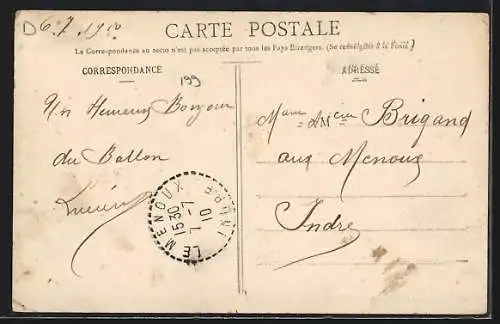 D 6.7.1910
CARTE POSTALE
La Correspondance au recto n'est pas acceptée par tous les Pays Etrangers. (Se renseigner à la Poste)
CORRESPONDANCE
ADRESSE
199
Un Heureux Bonjour
du Ballon
Lucien
Mame Brigand
aux Menoux
Indre
LE MENOUX
15·30
7-7
10
INDRE